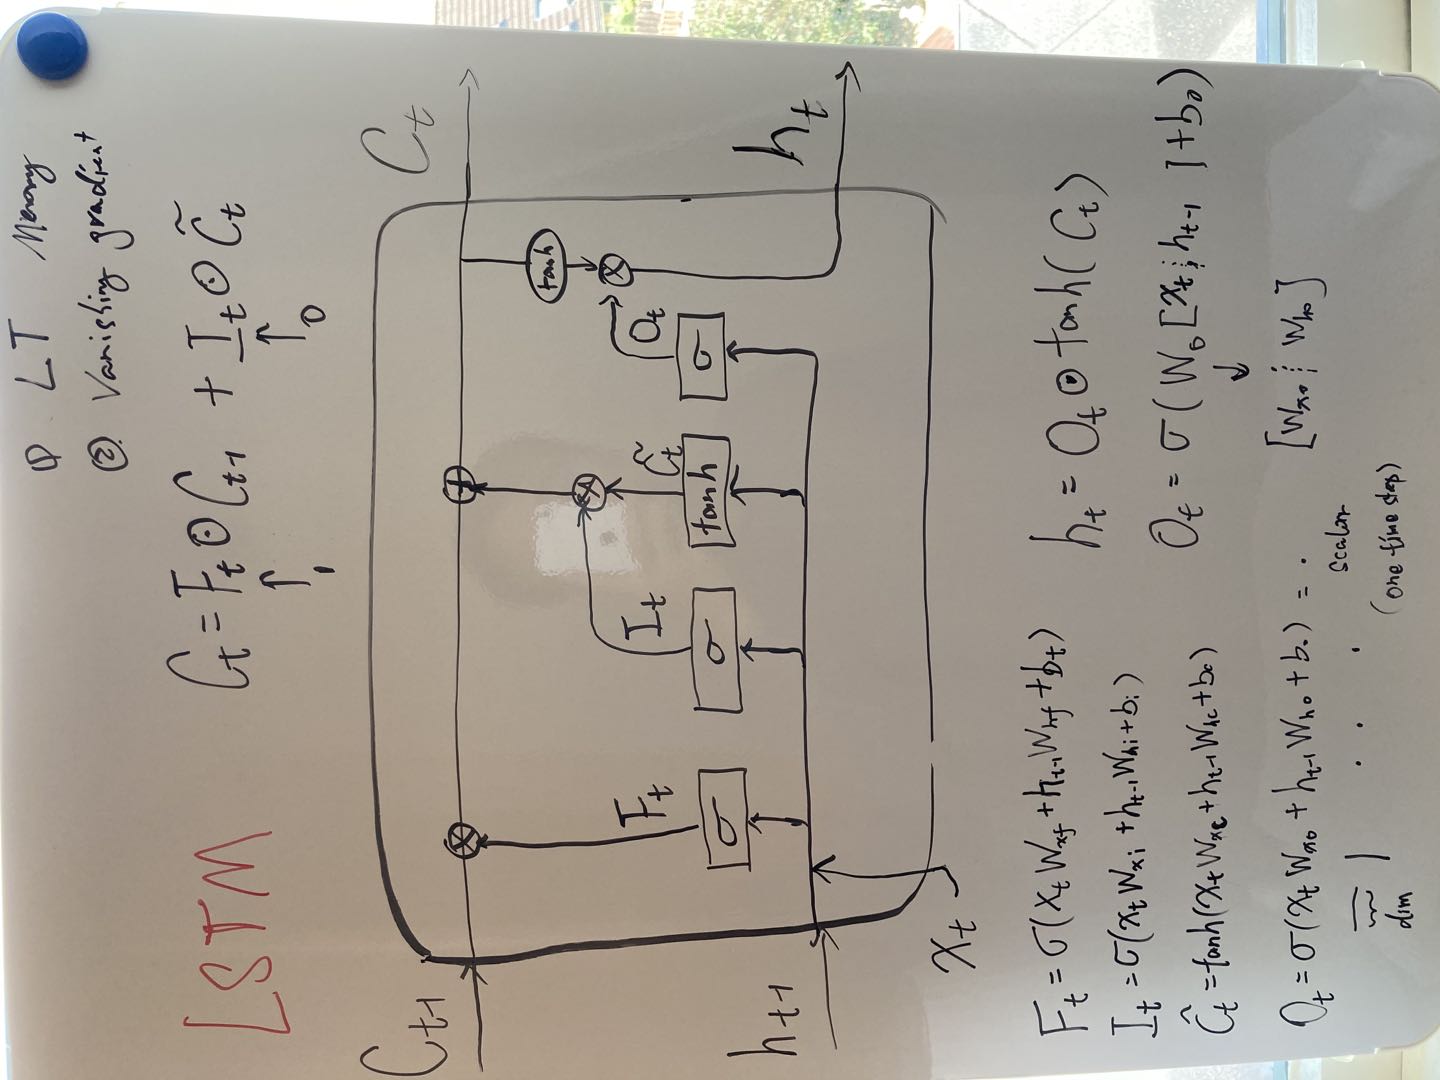 ① LT Memory
② Vanishing gradient
LSTM
C_t = F_t ⊙ C_t-1 + I_t ⊙ C̃_t
↑ ↑
1 0
C_t-1
C_t
⊗ +
tanh
⊗ ⊗
F_t I_t C̃_t O_t
σ σ tanh σ
h_t-1
h_t
x_t
F_t = σ(x_t W_xf + h_t-1 W_hf + b_t)
I_t = σ(x_t W_xi + h_t-1 W_hi + b_i)
Ĉ_t = tanh(x_t W_xc + h_t-1 W_hc + b_c)
O_t = σ(x_t W_xo + h_t-1 W_ho + b_o) = .
dim 1 . . .
scalar
(one time step)
h_t = O_t ⊙ tanh(C_t)
O_t = σ(W_o [x_t ⋮ h_t-1 ] + b_o)
↓
[W_xo ⋮ W_ho]